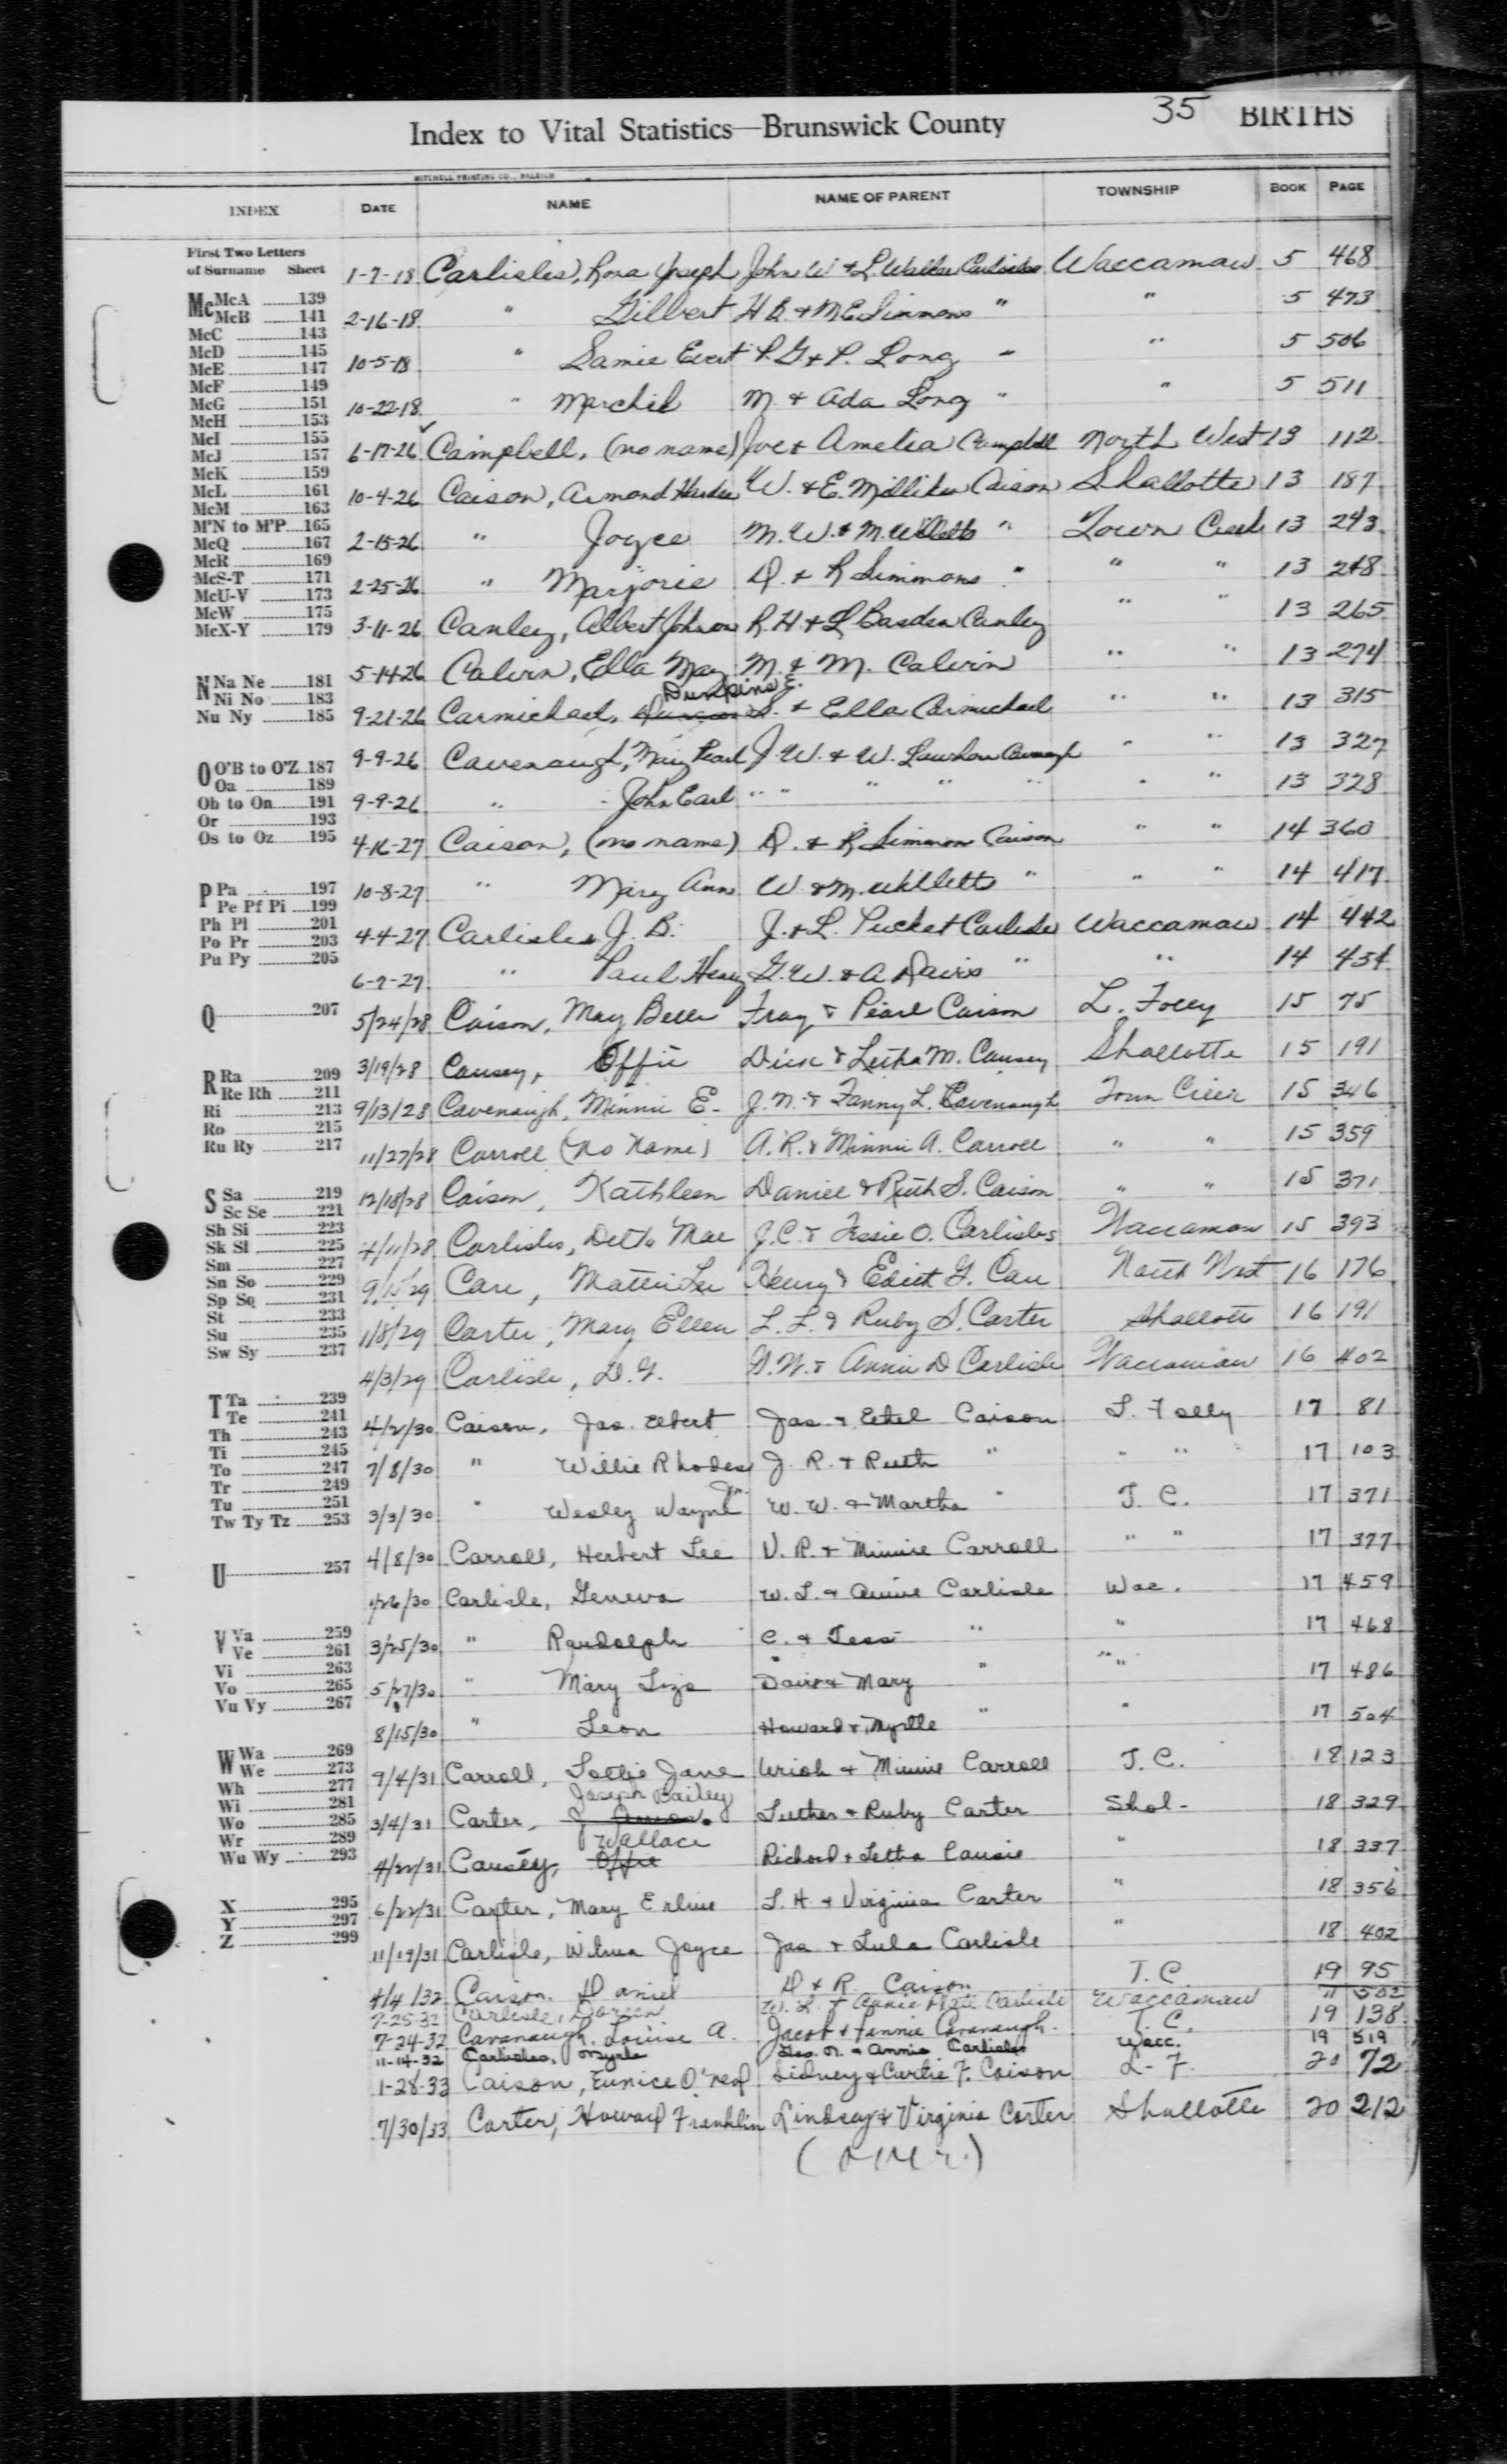 Index to Vital Statistics—Brunswick County 35 BIRTHS
MITCHELL PRINTING CO., RALEIGH
INDEX DATE NAME NAME OF PARENT TOWNSHIP BOOK PAGE
First Two Letters
of Surname Sheet
Mc McA 139
McB 141
McC 143
McD 145
McE 147
McF 149
McG 151
McH 153
McI 155
McJ 157
McK 159
McL 161
McM 163
M'N to M'P 165
McQ 167
McR 169
McS-T 171
McU-V 173
McW 175
McX-Y 179
N Na Ne 181
Ni No 183
Nu Ny 185
O O'B to O'Z 187
Oa 189
Ob to On 191
Or 193
Os to Oz 195
P Pa 197
Pe Pf Pi 199
Ph Pl 201
Po Pr 203
Pu Py 205
Q 207
R Ra 209
Re Rh 211
Ri 213
Ro 215
Ru Ry 217
S Sa 219
Sc Se 221
Sh Si 223
Sk Sl 225
Sm 227
Sn So 229
Sp Sq 231
St 233
Su 235
Sw Sy 237
T Ta 239
Te 241
Th 243
Ti 245
To 247
Tr 249
Tu 251
Tw Ty Tz 253
U 257
V Va 259
Ve 261
Vi 263
Vo 265
Vu Vy 267
W Wa 269
We 273
Wh 277
Wi 281
Wo 285
Wr 289
Wu Wy 293
X 295
Y 297
Z 299
1-7-18 Carlisles, Rosa Joseph John W & L. Walker Carlisles Waccamaw 5 468
2-16-18 " Gilbert H B. & M E Simmons " " 5 473
10-5-18 " Samie Evert P. G & P. Long " " 5 506
10-22-18 " Marchel M. & Ada Long " " 5 511
6-17-26 Campbell, (no name) Joe & Amelia Campbell North West 13 112
10-4-26 Caison, Armond Hardee W. & E. Milliken Caison Shallotte 13 187
2-15-26 " Joyce M. W. & M. Willetts " Town Creek 13 243
2-25-26 " Marjorie D. & R Simmons " " " 13 248
3-11-26 Canley, Albert Johnson R. H & L Basden Canley " " 13 265
5-14-26 Calvin, Ella May M. & M. Calvin " " 13 274
9-21-26 Carmichael, S. & Ella Carmichael " " 13 315
9-9-26 Cavenaugh, Mary Pearl J. W. & W. Lawhon Cavenaugh " " 13 327
9-9-26 " John Earl " " " " " " " 13 328
4-16-27 Caison, (no name) D. & R Simmons Caison " " 14 360
10-8-27 " Mary Ann W & M. Willetts " " " 14 417
4-4-27 Carlisles J. B. J. & L. Pucket Carlisles Waccamaw 14 442
6-7-27 " Paul Henry G. W. & A Davis " " 14 454
5/24/28 Caison, May Belle Fray & Pearl Caison L. Folly 15 75
3/19/28 Causey, Offie Dick & Letha M. Causey Shallotte 15 191
9/13/28 Cavenaugh, Minnie E. J. N. & Fanny L. Cavenaugh Town Creek 15 346
11/27/28 Carroll (No Name) A. R. & Minnie A. Carroll " " 15 359
12/18/28 Caison, Kathleen Daniel & Ruth S. Caison " " 15 371
4/11/28 Carlisles, Detta Mae J. C. & Tessie O. Carlisles Waccamaw 15 393
Carr, Mattie Lee Henry & Edith G. Carr North West 16 176
1/8/29 Carter, Mary Ellen L. L. & Ruby S. Carter Shallotte 16 191
4/3/29 Carlisle, D. G. G. W. & Annie D Carlisle Waccamaw 16 402
4/2/30 Caison, Jas. Elbert Jas. & Ethel Caison L. Folly 17 81
7/8/30 " Willie Rhodes J. R. & Ruth " " " 17 103
3/3/30 " Wesley Wayne Jr. W. W. & Martha " T. C. 17 371
4/8/30 Carroll, Herbert Lee V. R. & Minnie Carroll " " 17 377
1/26/30 Carlisle, Geneva W. L. & Annie Carlisle Wac. 17 459
3/25/30 " Randolph C. & Tess " " 17 468
5/27/30 " Mary Liza David & Mary " " 17 486
8/15/30 " Leon Howard & Myrtle " " 17 504
9/4/31 Carroll, Lottie Jane Uriah & Minnie Carroll T. C. 18 123
Joseph Bailey
3/4/31 Carter, J Amos Luther & Ruby Carter Shal- 18 329
Wallace
4/22/31 Causey, Offie Richard & Letha Causie " 18 337
6/22/31 Carter, Mary Erline L. H. & Virginia Carter " 18 356
11/19/31 Carlisle, Wilma Joyce Jas. & Lula Carlisle " 18 402
4/4/32 Caison. Daniel D & R. Caison T. C. 19 95
7-25-32 Carlisle, Doreen W. L. & Annie Carlisle Waccamaw " 502
7-24-32 Cavanaugh. Louise A. Jacob & Fannie Cavanaugh. T. C. 19 138
11-14-32 Carlisles, Myrle Geo. W. & Annie Carlisles Wacc. 19 519
1-28-33 Caison, Eunice O'Neal Sidney & Curtie F. Caison L-F. 20 72
7/30/33 Carter, Howard Franklin Lindsey & Virginia Carter Shallotte 20 212